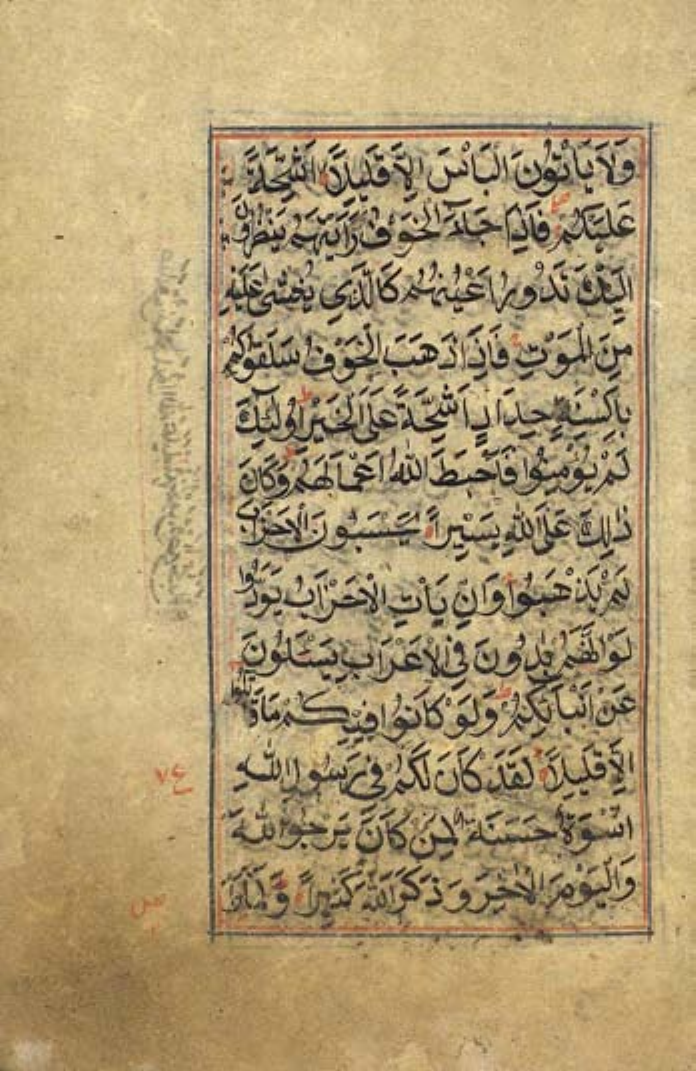 وَلَا يَأْتُونَ الْبَأْسَ اِلَّا قَلِيلًا اَشِحَّةً
عَلَيْكُمْ فَاِذَا جَاءَ الْخَوْفُ رَاَيْتَهُمْ يَنْظُرُونَ
اِلَيْكَ تَدُورُ اَعْيُنُهُمْ كَالَّذِي يُغْشٰى عَلَيْهِ
مِنَ الْمَوْتِ فَاِذَا ذَهَبَ الْخَوْفُ سَلَقُوكُمْ
بِاَلْسِنَةٍ حِدَادٍ اَشِحَّةً عَلَى الْخَيْرِ اُولٰئِكَ
لَمْ يُؤْمِنُوا فَاَحْبَطَ اللّٰهُ اَعْمَالَهُمْ وَكَانَ
ذٰلِكَ عَلَى اللّٰهِ يَسِيرًا يَحْسَبُونَ الْاَحْزَابَ
لَمْ يَذْهَبُوا وَاِنْ يَاْتِ الْاَحْزَابُ يَوَدُّوا
لَوْ اَنَّهُمْ بَادُونَ فِي الْاَعْرَابِ يَسْئَلُونَ
عَنْ اَنْبَائِكُمْ وَلَوْ كَانُوا فِيكُمْ مَا قَاتَلُوا
اِلَّا قَلِيلًا لَقَدْ كَانَ لَكُمْ فِي رَسُولِ اللّٰهِ
اُسْوَةٌ حَسَنَةٌ لِمَنْ كَانَ يَرْجُوا اللّٰهَ
وَالْيَوْمَ الْاٰخِرَ وَذَكَرَ اللّٰهَ كَثِيرًا وَلَمَّا رَاَ